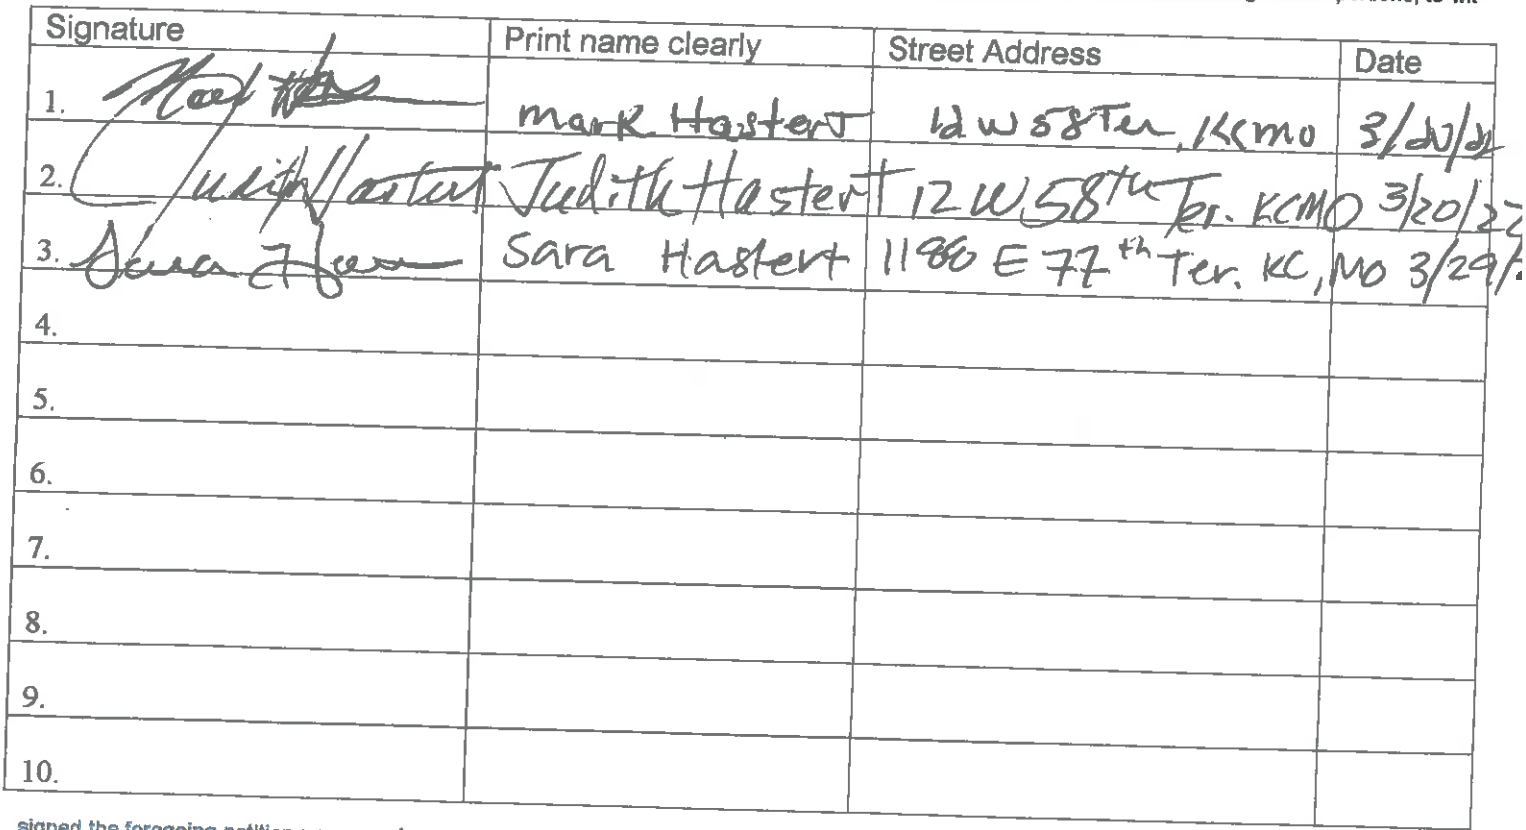 Signature Print name clearly Street Address Date
1. Mark Hastert 12 W 58 Ter, KCMO 3/20/22
2. Judith Hastert Judith Hastert 12 W 58th Ter. KCMO 3/20/22
3. Sara Hastert E 77th Ter. KC, MO 3/29/
4.
5.
6.
7.
8.
9.
10.
signed the foregoing petition